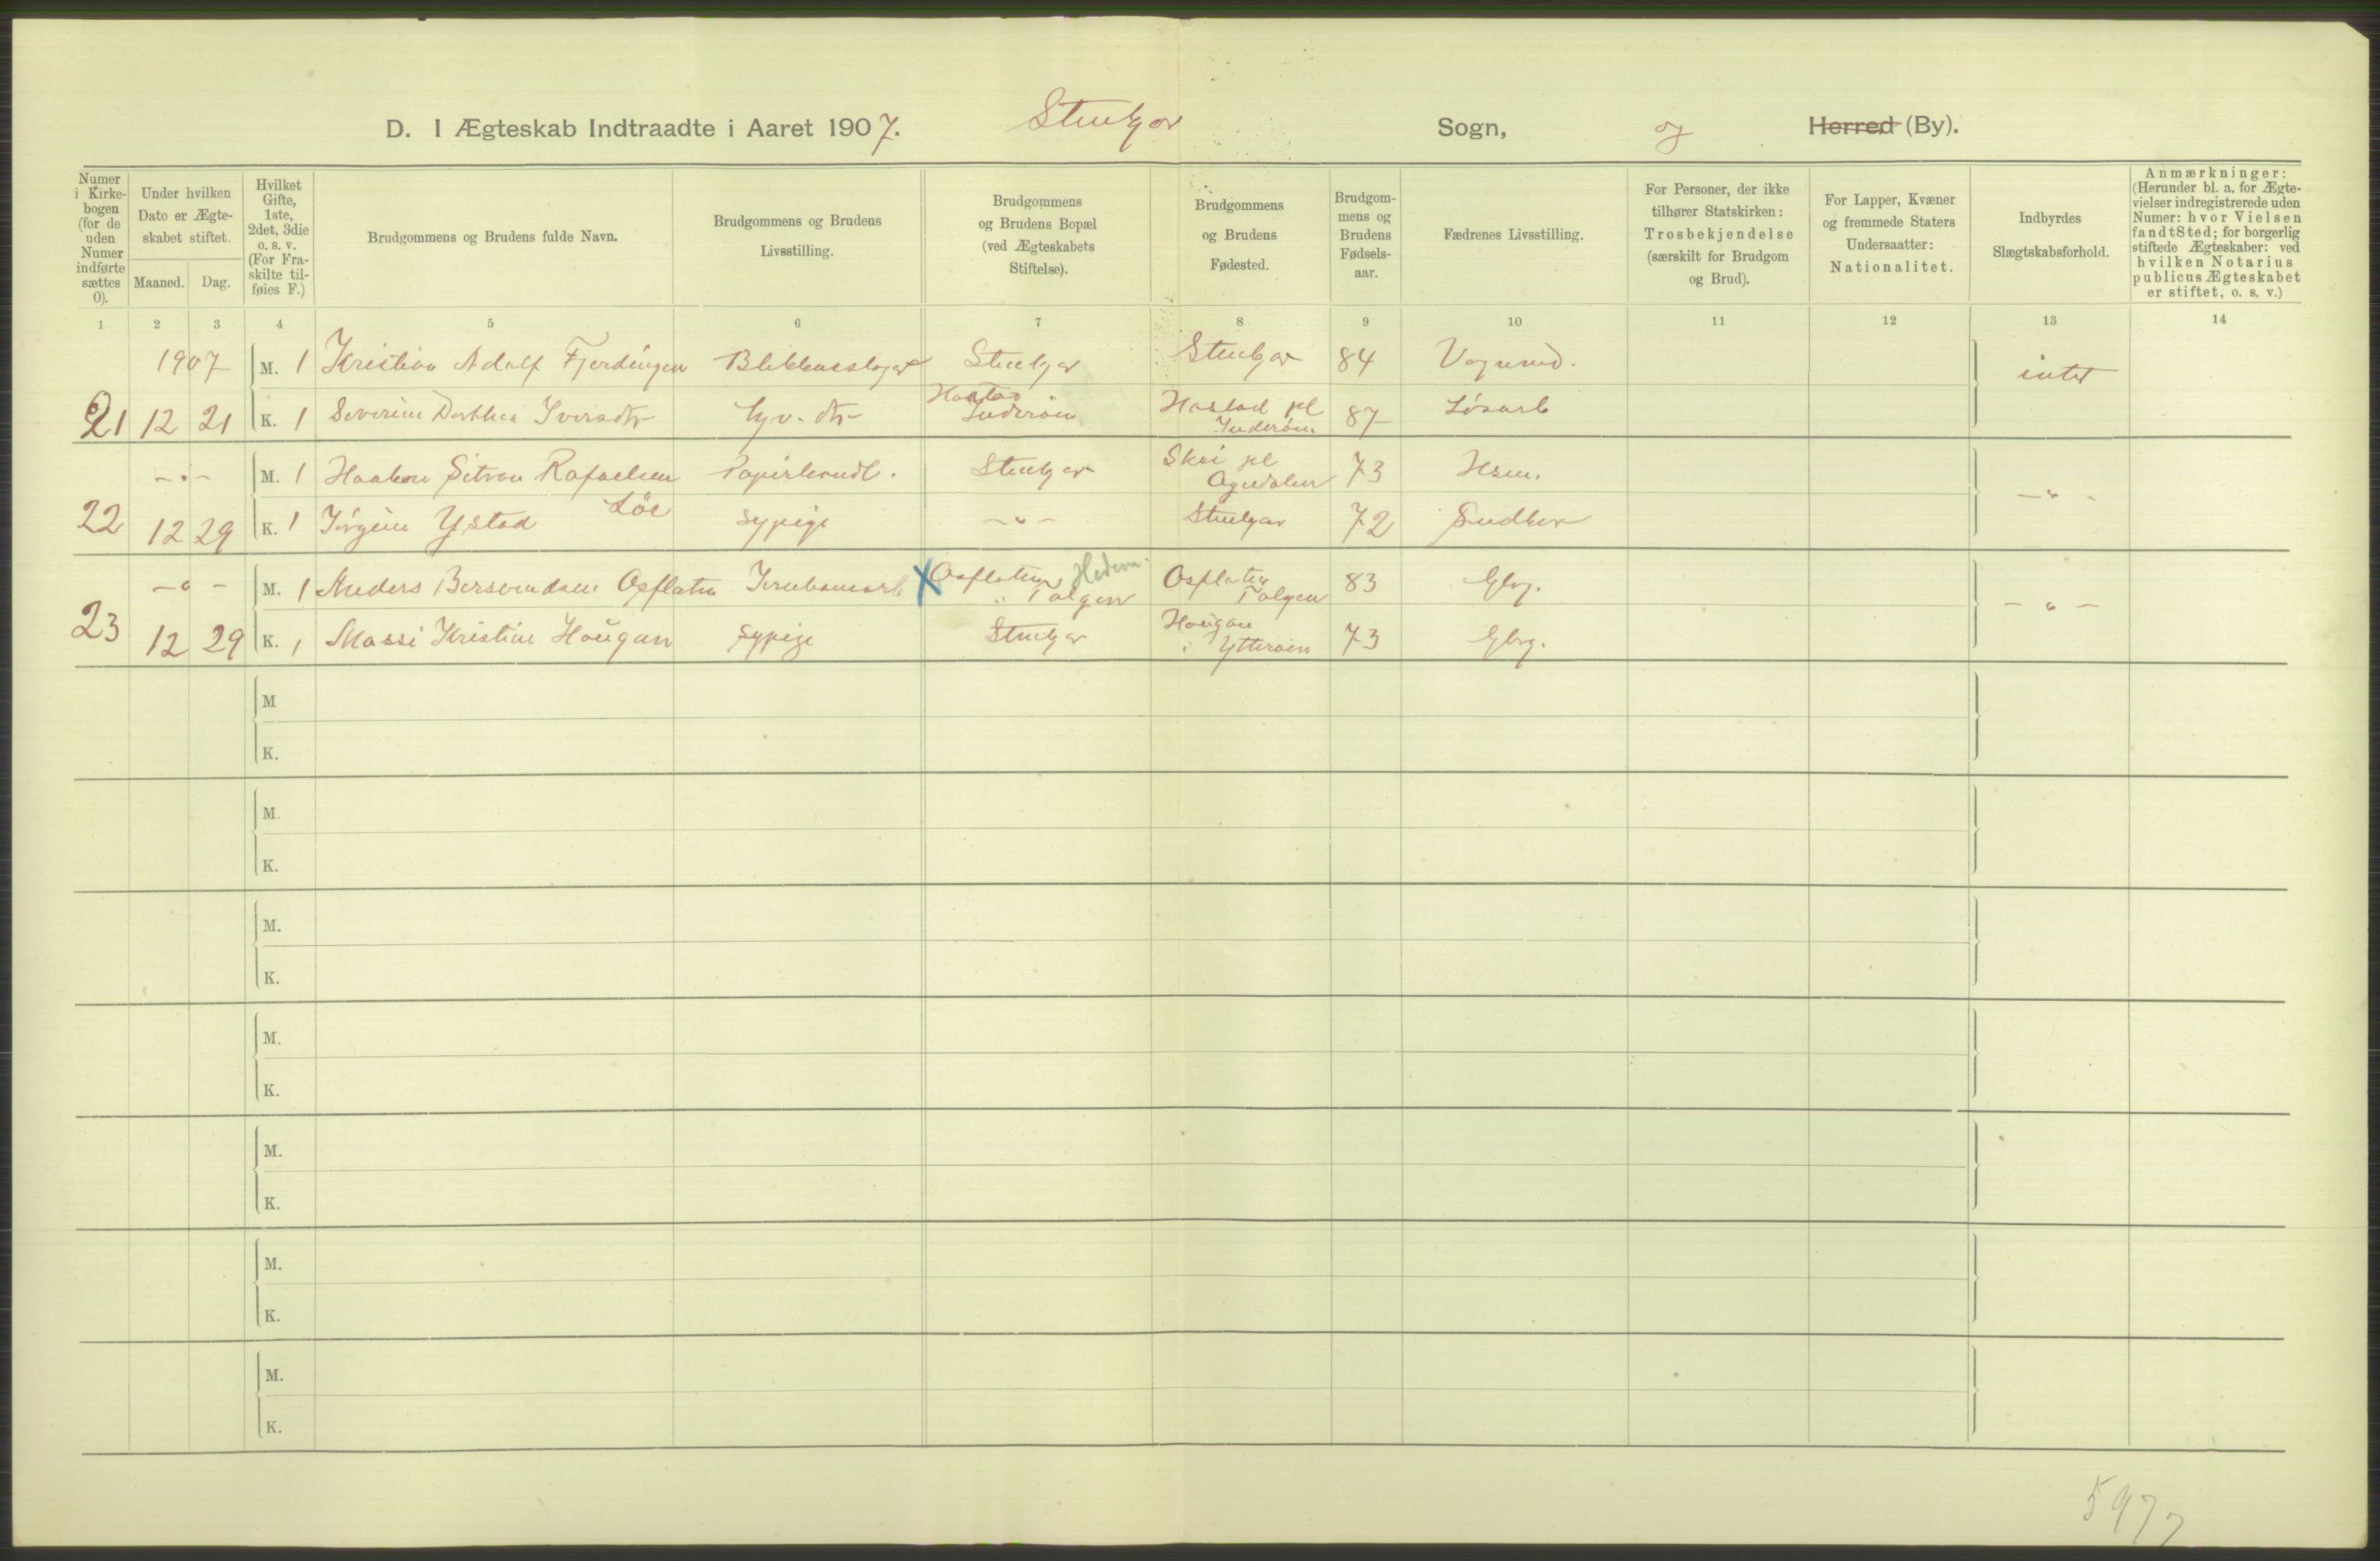 D. I Ægteskab Indtraadte i Aaret 1907. Stenkjær Sogn, og Herred (By).
Numer i Kirkebogen (for de uden Numer indførte sættes 0).
Under hvilken Dato er Ægteskabet stiftet.
Maaned. Dag.
Hvilket Gifte, 1ste, 2det, 3die o. s. v. (For Fraskilte tilføies F.)
Brudgommens og Brudens fulde Navn.
Brudgommens og Brudens Livsstilling.
Brudgommens og Brudens Bopæl (ved Ægteskabets Stiftelse).
Brudgommens og Brudens Fødested.
Brudgommens og Brudens Fødselsaar.
Fædrenes Livsstilling.
For Personer, der ikke tilhører Statskirken: Trosbekjendelse (særskilt for Brudgom og Brud).
For Lapper, Kvæner og fremmede Staters Undersaatter: Nationalitet.
Indbyrdes Slægtskabsforhold.
Anmærkninger: (Herunder bl. a. for Ægtevielser indregistrerede uden Numer: hvor Vielsen fandt Sted; for borgerlig stiftede Ægteskaber: ved hvilken Notarius publicus Ægteskabet er stiftet, o. s. v.)
1 2 3 4 5 6 7 8 9 10 11 12 13 14
1907 M. 1 Kristian Adolf Fjerdingen Blikkenslager Stenkjær Stenkjær 84 Vognmd. intet
21 12 21 K. 1 Severine Dorthea Iversdtr hjv. dtr Hastad Inderøen Hastad pl Inderøen 87 Løsarb
-"- M. 1 Haakon Sitron Rafaelsen Papirhandl. Stenkjær Skei pl Ogndalen 73 Hsm. -"-
Löe
22 12 29 K. 1 Jørgine Ystad Sypige -"- Stenkjær 72
-"- M. 1 Anders Bersvendsen Osflaten Jernbanearb X Osflaten Hedem. i Tolgen Osflaten Tolgen 83 Gbrg. -"-
23 12 29 K. 1 Massi Kristine Hougan Sypige Stenkjær Hougan i Ytterøen 73 Gbrg.
M
K.
M.
K.
M.
K.
M.
K.
M.
K.
M.
K.
M.
K.
5977